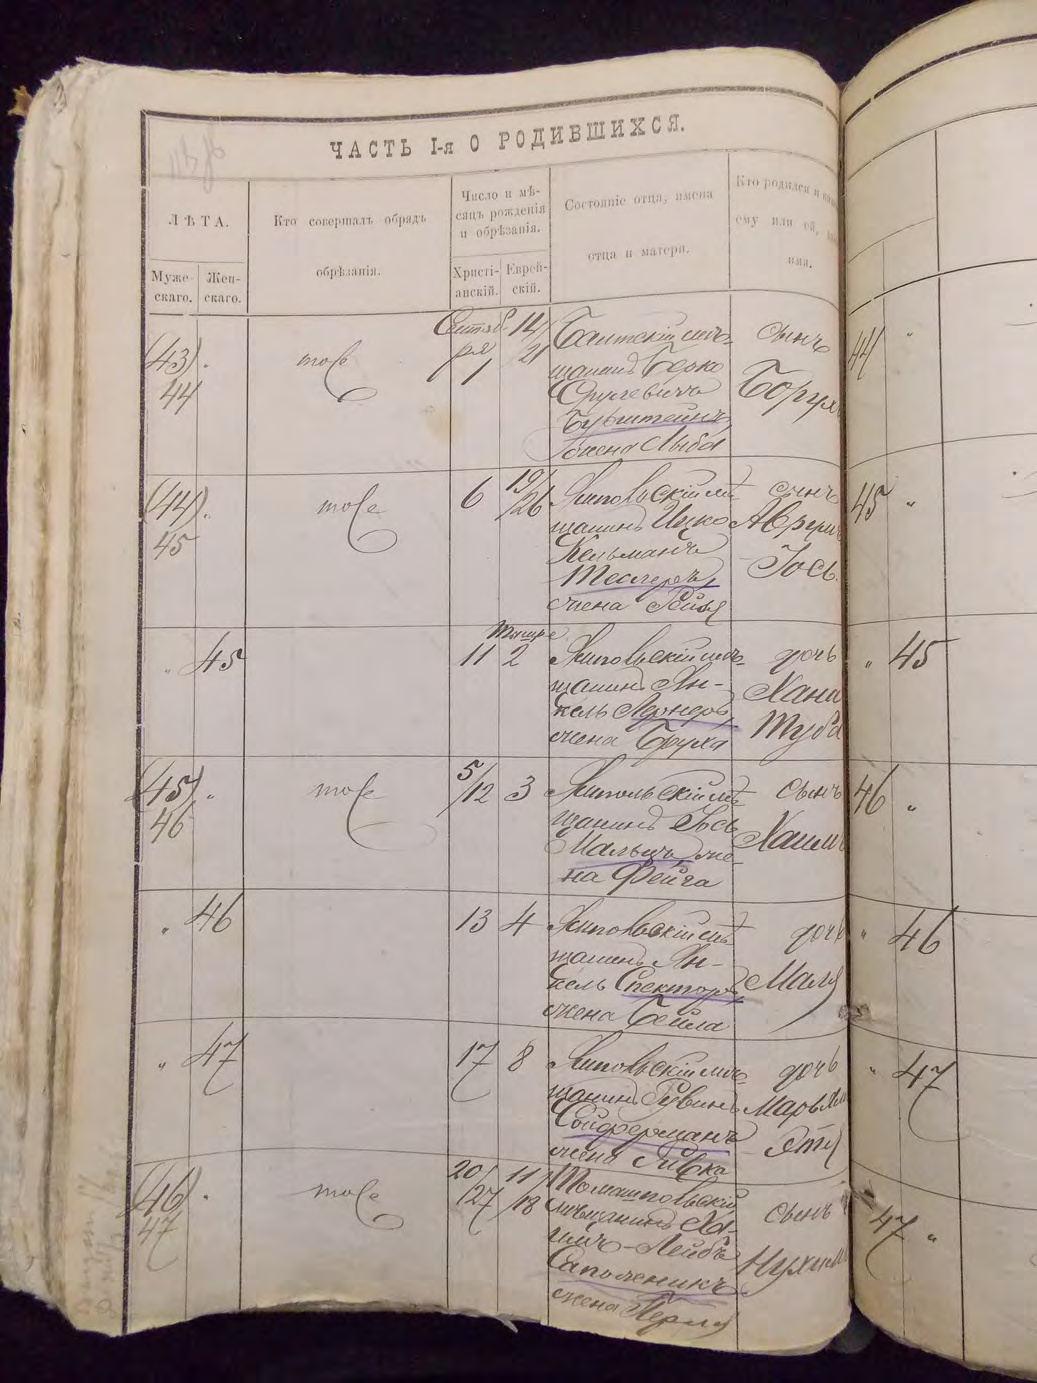 ЧАСТЬ I-я О РОДИВШИХСЯ.
ЛѢТА.
Муже-
скаго.
Жен-
скаго.
Кто совершалъ обрядъ
обрѣзанія.
Число и мѣ-
сяцъ рожденія
и обрѣзанія.
Христі-
анскій.
Еврей-
скій.
Состояніе отца, имена
отца и матери.
Кто родился и
ему или ей,
имя.
(43)
44
тоже
Сентяб
ря
1
14/
/21
мѣ-
щанинъ Берко
жена Лыба
сынъ
44 "
(44)
45
тоже
6
19/
/26
Липовскій мѣ
щанинъ Ицко
Кельманъ
Теслеръ
жена Рейзя
сынъ
Аврум
Іось
45 "
" 45
11
Тишре
2
Липовскій мѣ-
щанинъ Ян-
кель
жена Бруха
дочь
Хана
Туба
" 45
(45) "
46
тоже
5
/12
3
Липовскій мѣ
щанинъ Іось
Мальцъ же-
на Фейга
сынъ
Хаимъ
46 "
" 46
13
4
Липовскій мѣ
щанинъ Ян-
кель Спекторъ
жена Бейла
дочь
Маля
" 46
" 47
17
8
Липовскій мѣ-
щанинъ Рувинъ
Сойферманъ
жена Ривка
дочь
Марьям
Этя
" 47
(46)
47
тоже
20/
/27
11/
/18
Томашпольскій
мѣщанинъ Ха-
имъ-Лейбъ
Сапожникъ
жена Перля
сынъ
Нухим
47 "